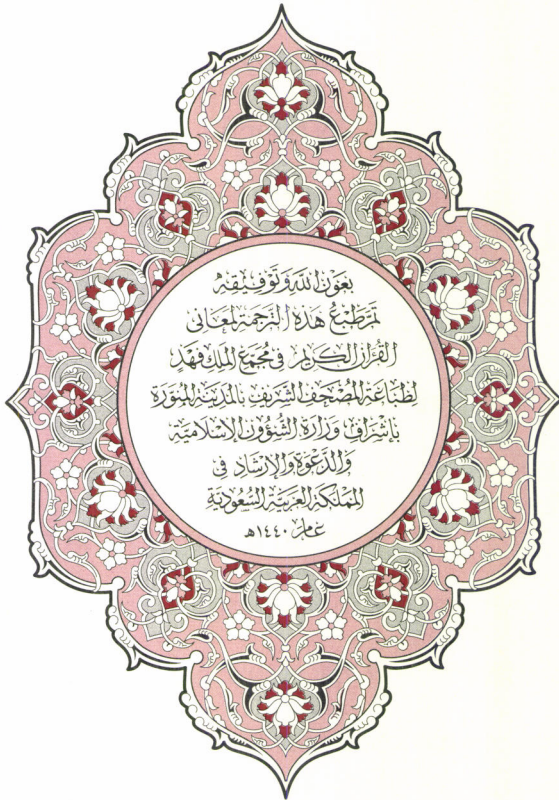 بعون الله وتوفيقه
تم طبع هذه الترجمة لمعاني
القرآن الكريم في مجمع الملك فهد
لطباعة المصحف الشريف بالمدينة المنورة
بإشراف وزارة الشؤون الإسلامية
والدعوة والإرشاد في
المملكة العربية السعودية
عام ١٤٤٠هـ